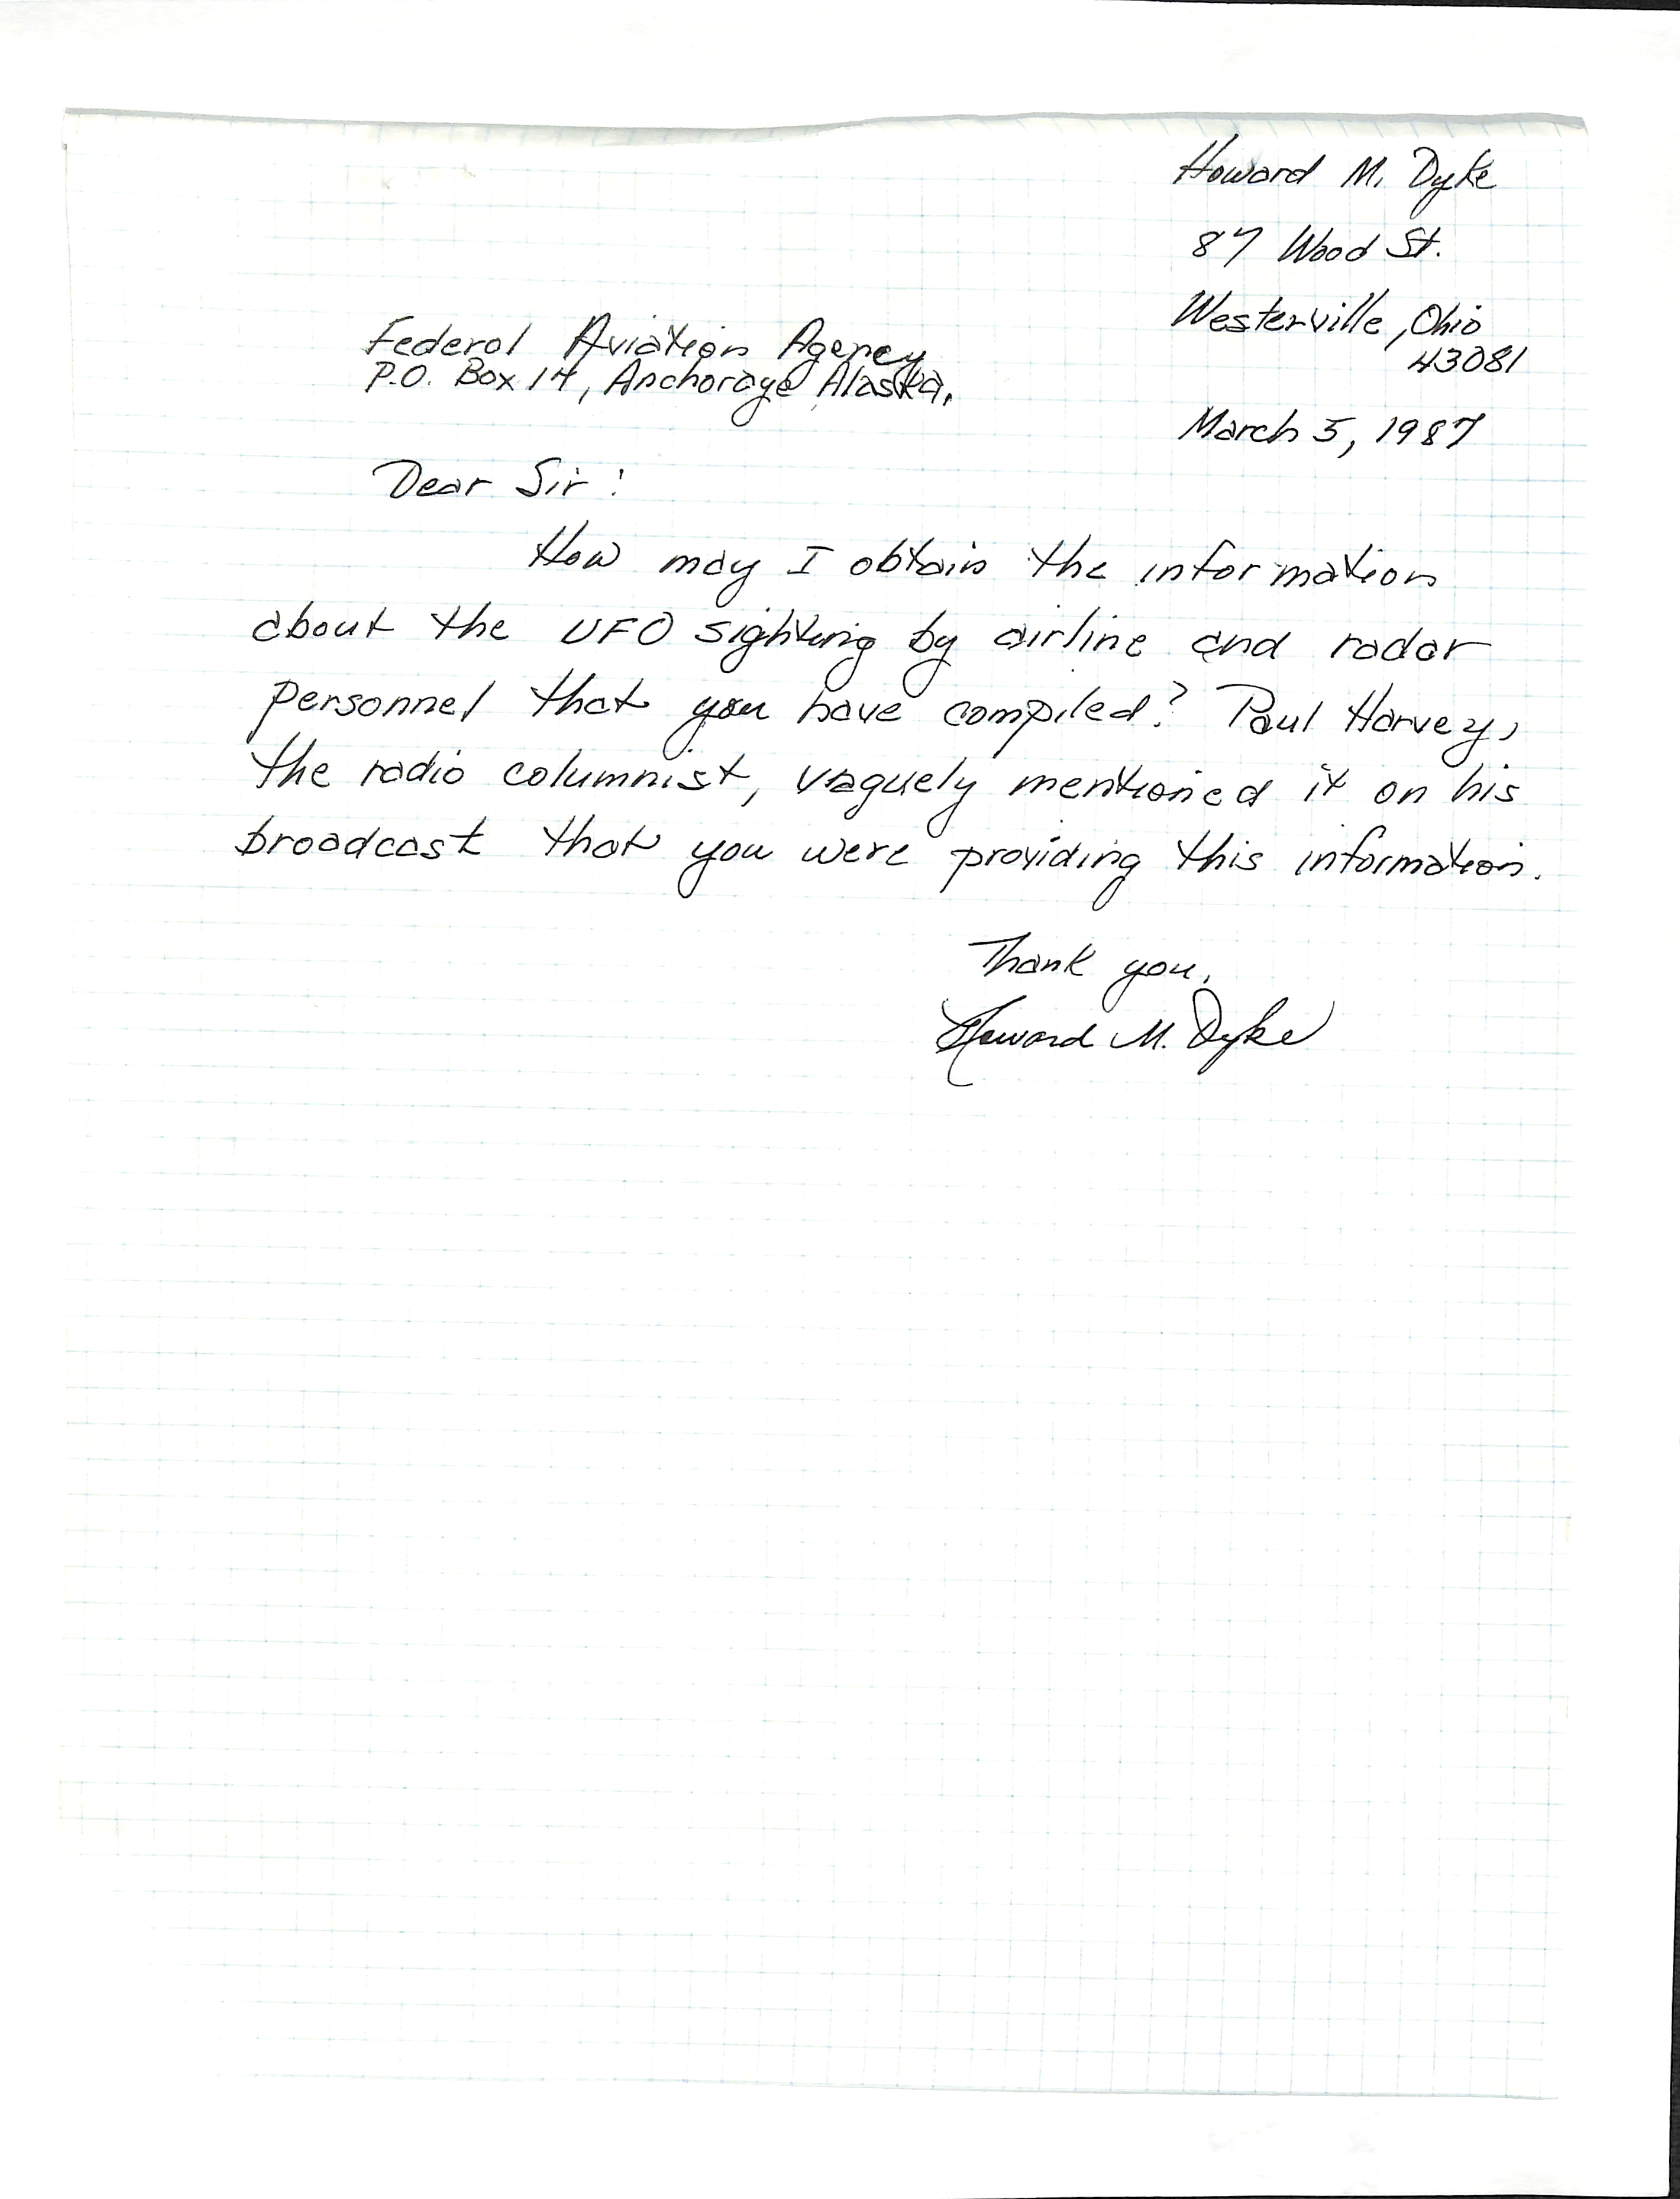 Howard M. Dyke
87 Wood St.
Westerville, Ohio
43081
Federal Aviation Agency
P.O. Box 14, Anchorage Alaska.
March 5, 1987
Dear Sir:
How may I obtain the information
about the UFO sighting by airline and radar
personnel that you have compiled? Paul Harvey,
the radio columnist, vaguely mentioned it on his
broadcast that you were providing this information.
Thank you,
Howard M. Dyke